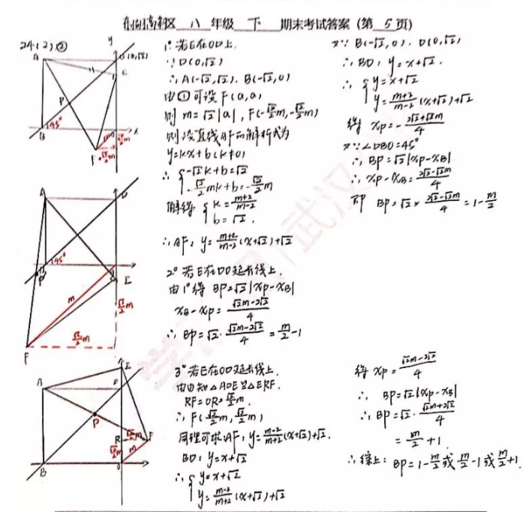 八 年级 下 期末考试答案(第 5 页)
24(2)②
1°若E在OD上.
∵D(0,√2)
∴A(-√2,√2). B(-√2,0)
由①可设F(a,a)
则 m=√2|a|, F(-√2/2m,-√2/2m)
则设直线AF的解析式为
y=kx+b(k≠0)
∴{-√2k+b=√2
-√2/2mk+b=-√2/2m
解得{k=(m+2)/(m-2)
b=√2.
∴AF: y=(m+2)/(m-2)(x+√2)+√2
又∵B(-√2,0). D(0,√2)
∴BD: y=x+√2.
∴{y=x+√2
y=(m+2)/(m-2)(x+√2)+√2
得 xp=-(2√2+√2m)/4
又∵∠DBO=45°
∴BP=√2|xp-xB|
∴xp-xB=(2√2-√2m)/4
即 BP=√2×(2√2-√2m)/4=1-m/2
2°若E在DO延长线上.
由1°得 BP=√2|xp-xB|
xB-xp=(√2m-2√2)/4
∴BP=√2·(√2m-2√2)/4=m/2-1
3°若E在OD延长线上.
由①知△ADE≌△ERF.
RF=OR=√2/2m.
∴F(√2/2m,√2/2m)
同理可求AF: y=(m-2)/(m+2)(x+√2)+√2.
BD: y=x+√2
∴{y=x+√2
y=(m-2)/(m+2)(x+√2)+√2
得 xp=(√2m-2√2)/4
∴BP=√2|xp-xB|
∴BP=√2·(√2m+2√2)/4
=m/2+1.
∴综上: BP=1-m/2或m/2-1或m/2+1.